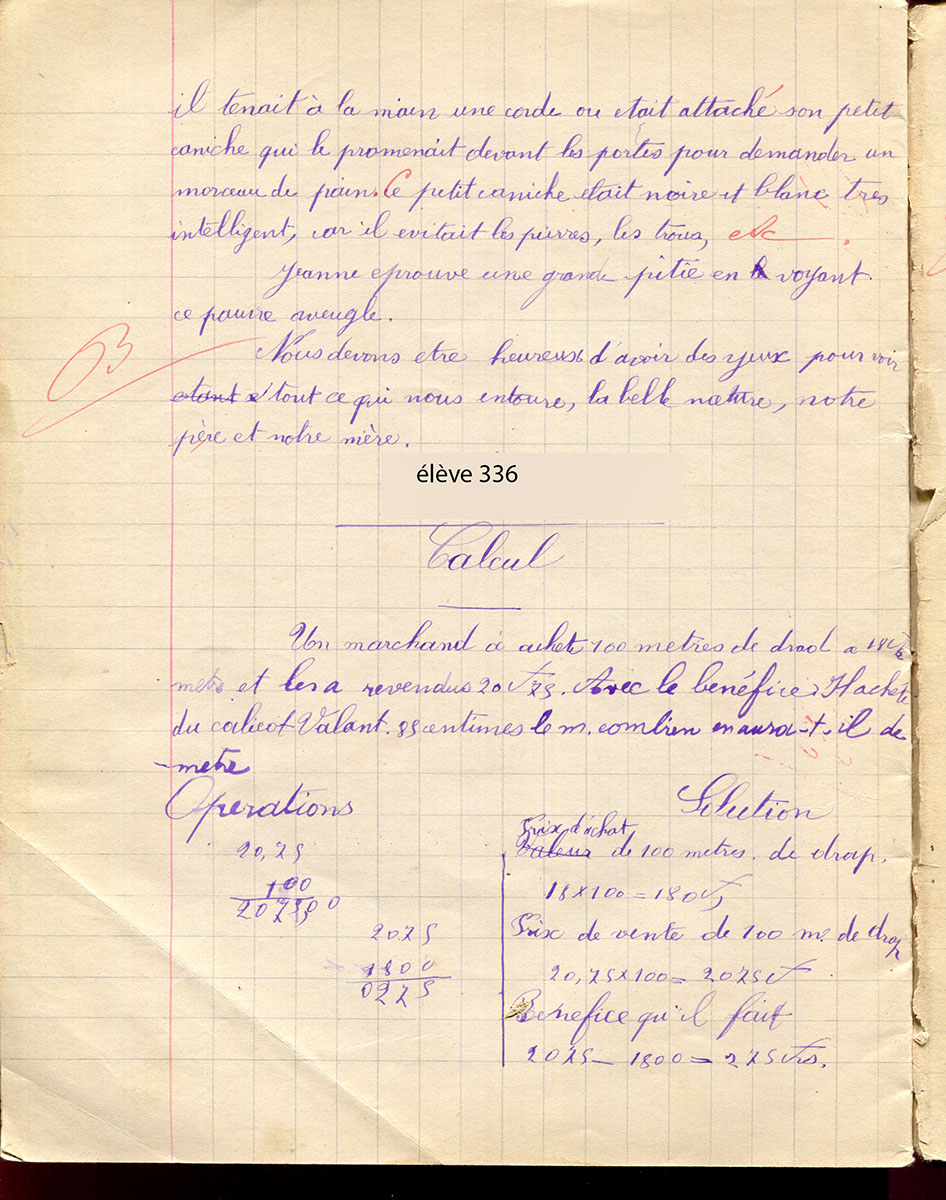 il tenait à la main une corde ou etait attaché son petit
caniche qui le promenait devant les portes pour demander un
morceau de pain. Ce petit caniche etait noire et blanc tres
intelligent, car il evitait les pierres, les trous, etc .
Jeanne eprouve une grande pitie en voyant
ce pauvre aveugle.
Nous devons etre heureux d'avoir des yeux pour voir
tout ce qui nous entoure, la belle nature, notre
père et notre mère.
B
élève 336
Calcul
Un marchand à acheté 100 metres de drad a 18f le
metre et les a revendus 20f 75. Avec le bénéfice Il achète
du calicot Valant. 85 centimes le m. combien en aura-t-il de
metre
Operations
Solution
20,75
100
2075,00
2075
1800
0275
Prix d'achat
Valeur de 100 metres. de drap.
18 x 100 = 180f
Prix de vente de 100 m. de drap
20,75 x 100 = 2075f
Benefice qu'il fait
2075 - 1800 = 275 frs.